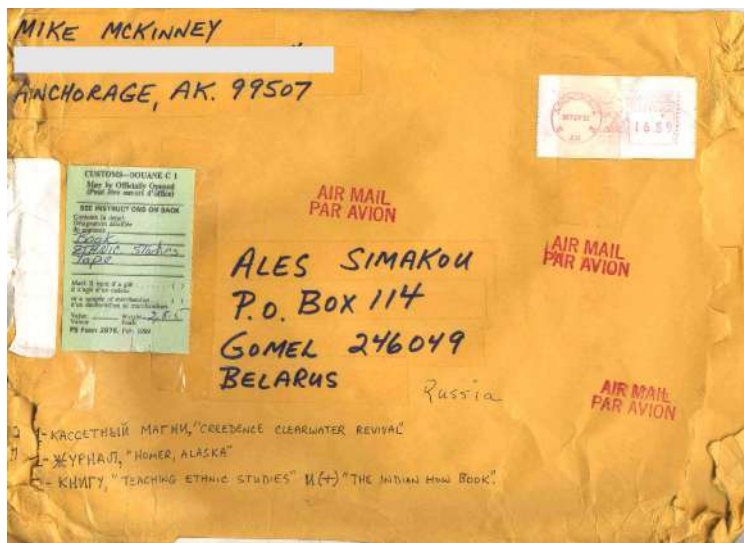 MIKE MCKINNEY
ANCHORAGE, AK. 99507
1689
CUSTOMS—DOUANE C 1
May be Officially Opened
(Peut être ouvert d'office)
SEE INSTRUCTIONS ON BACK
Contents in detail:
Désignation détaillée
Book
ETHNIC Studies
Tape
Mark X here if a gift ( )
or a sample of merchandise ( )
PS Form 2976,
AIR MAIL
PAR AVION
AIR MAIL
PAR AVION
ALES SIMAKOU
P.O. BOX 114
GOMEL 246049
BELARUS
Russia
AIR MAIL
PAR AVION
1-КАССЕТНЫЙ МАГНИ, "CREEDENCE CLEARWATER REVIVAL"
1-ЖУРНАЛ, "HOMER, ALASKA"
- КНИГУ, "TEACHING ETHNIC STUDIES" И (+) "THE INDIAN HOW BOOK".